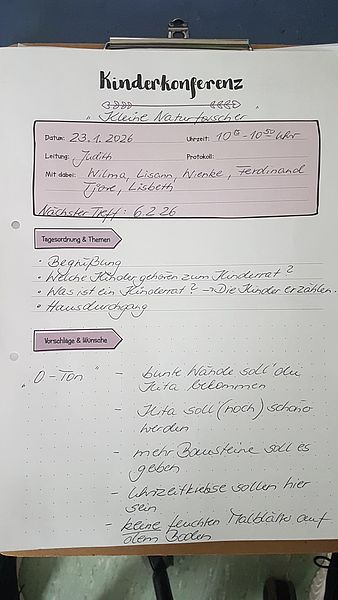 Kinderkonferenz
"Kleine Naturforscher"
Datum: 23.1.2026 Uhrzeit: 10 - 10 50 Uhr
Leitung: Judith Protokoll:
Mit dabei: Wilma, Lisann, Wienke, Ferdinand
Tjore, Lisbeth
Nächster Treff: 6.2.26
Tagesordnung & Themen
• Begrüßung
• Welche Kinder gehören zum Kinderrat?
• Was ist ein Kinderrat? → Die Kinder erzählen.
• Hausdurchgang
Vorschläge & Wünsche
"O-Ton" - bunte Wände soll die
Kita bekommen
- Kita soll (noch) schöner
werden
- mehr Bausteine soll es
geben
- Uhrzeitkrebse sollen hier
sein
- keine feuchten Malblätter auf
dem Boden